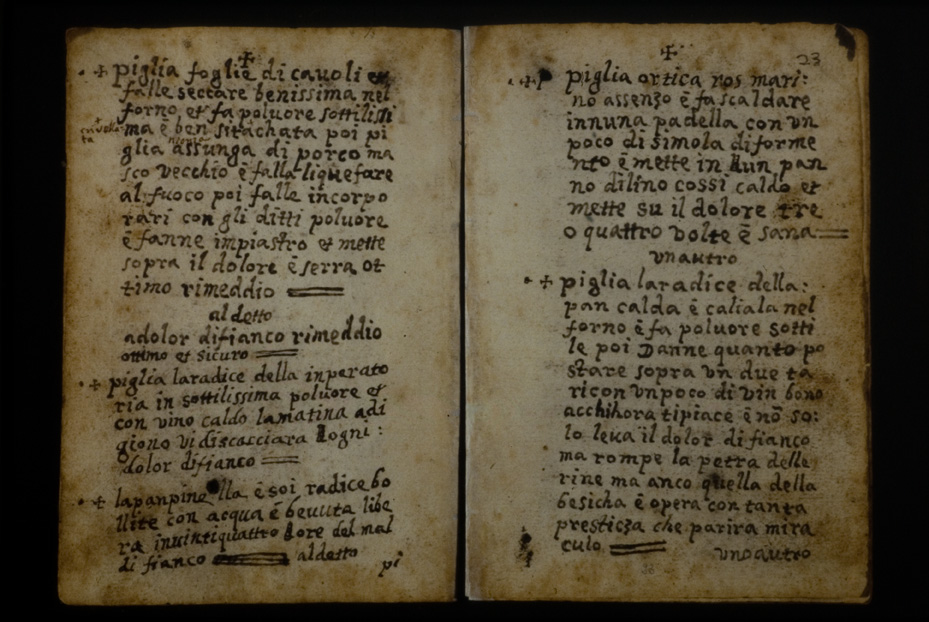 ✢
piglia foglie di cauoli et
falle seccare benissima nel
forno, et fa poluore sottilissi
ma è ben sitachata poi pi
glia assunga di porco ma
sco vecchio è falla liquefare
al fuoco poi falle incorpo
rari con gli ditti poluore
è fanne impiastro et mette
sopra il dolore è serra ot
timo rimeddio
al detto
adolor difianco rimeddio
ottimo et sicuro
✢ piglia laradice della inperato
ria in sottilissima poluore et
con vino caldo lamatina adi
giono vi discacciara logni :
dolor difianco
✢ lapanpinella è soi radice bo
llite con acqua è beuuta libe
ra inuintiquattro hore del mal
di fianco aldetto
pi
✢
23
✢ piglia ortica ros mari:
no assenzo è fa scaldare
innuna padella con vn
poco di simola diforme
nto è mette in hun pan
no dilino cossi caldo et
mette su il dolore tre
o quattro volte è sana
vnautro
✢ piglia laradice della :
pan calda è caliala nel
forno è fa poluore sotti
le poi Danne quanto po
stare sopra vn due ta
ri con vn poco di vin bono
acchihora tipiace è nõ so:
lo leua il dolor di fianco
ma rompe la petra delle
rine ma anco quella della
besicha è opera con tanta
presticza che parira mira
culo
vnoautro